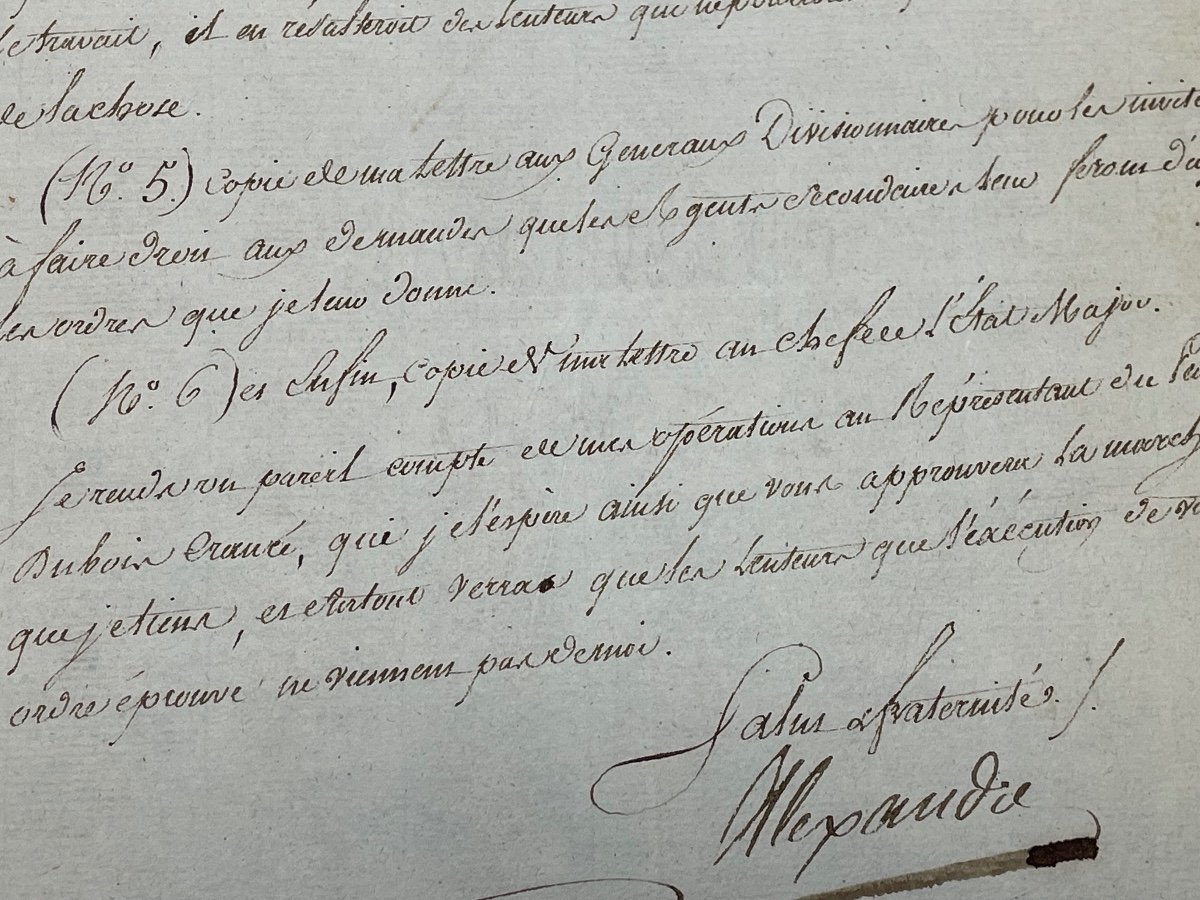 le travail, il en résulteroit des lenteurs que
de la chose.
(N.º 5.) copie de ma Lettre aux Généraux Divisionnaires pour les invite
à faire droit aux demandes que les Agents secondaires leur feront d'a
les ordres que je leur donne.
(N.º 6) et Enfin, copie de ma Lettre au chef de L'État Major.
Je rends un pareil compte de mes opérations au Réprésentant du
Dubois Crancé, qui je l'espère ainsi que vous approuvera la march
que je tiens, et surtout verra que les lenteurs que l'éxécution de vo
ordre éprouve ne viennent pas de moi.
Salut & fraternité.
Alexandre